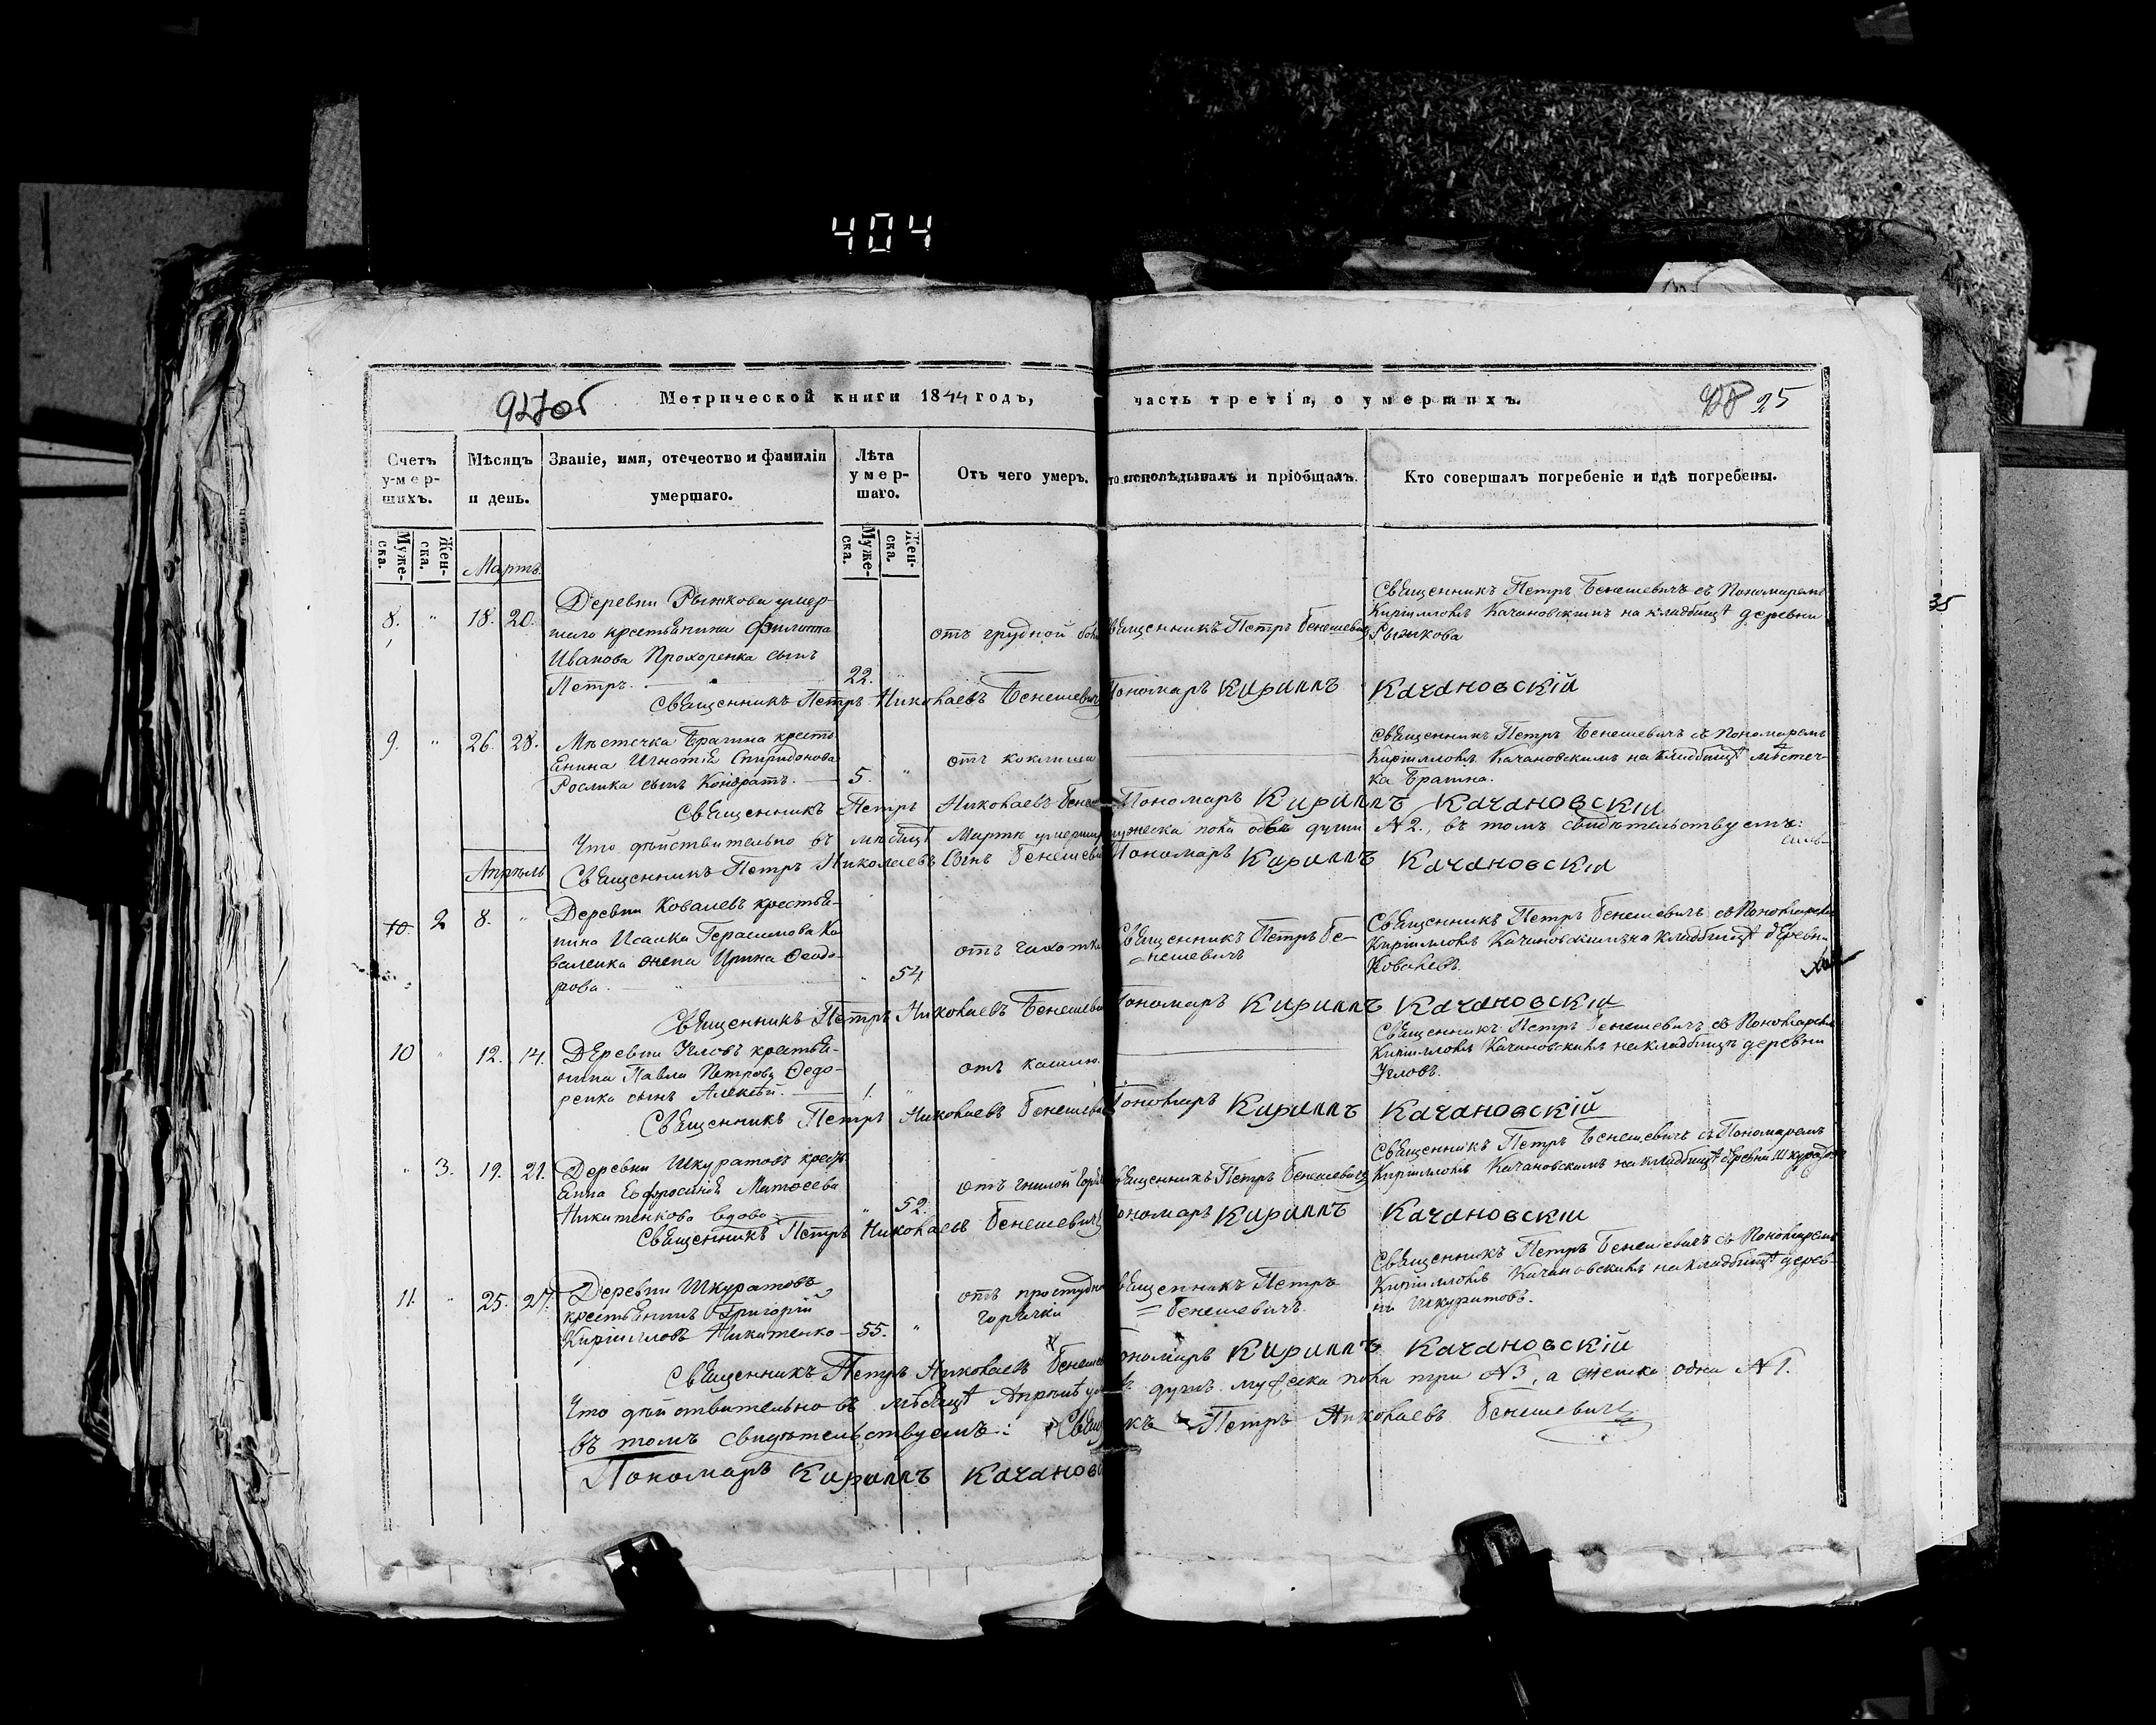 404
Метрической книги 1844 годъ, часть третія, о умершихъ.
25
Счетъ умершихъ.
Мѣсяцъ и день.
Званіе, имя, отечество и фамилія умершаго.
Лѣта умершаго.
Отъ чего умеръ.
исповѣдывалъ и пріобщалъ.
Кто совершалъ погребеніе и гдѣ погребены.
Мужеска.
Женска.
Мужеска.
Женска.
Мартъ
8. " 18. 20.
Деревни Рыжкова умер-
шаго крестьянина Филиппа
Иванова Прохоренка сынъ
Петръ. 22.
отъ грудной
Священникъ Петръ Бенешевичъ
Священникъ Петръ Бенешевичъ съ Пономаремъ
Кирилломъ Качановскимъ на кладбищѣ деревни
Рыжкова
Священникъ Петръ Николаевъ Бенешевичъ Пономарь Кириллъ Качановскій
9. " 26. 28.
Мѣстечка Брагина кресть
янина Игнатія Спиридонова
Рослика сынъ Кондратъ. 5. "
отъ коклюша
Священникъ Петръ Бенешевичъ съ Пономаремъ
Кирилломъ Качановскимъ на кладбищѣ мѣстеч-
ка Брагина.
Священникъ Петръ Николаевъ Пономарь Кириллъ Качановскій
Что дѣйствительно въ мѣсяцѣ Мартѣ мужеска пола двѣ души N 2., въ томъ свидѣтельствуемъ:
Апрѣль
Священникъ Петръ Николаевъ Сынъ Бенешевичъ Пономарь Кириллъ Качановскій
10. 2 8. "
Деревни Ковалевъ крестья-
нина Исаака Герасимова Ко
валенка жена Ирина Феодо-
рова. " 54
отъ чахотки
Священникъ Петръ Бе-
нешевичъ
Священникъ Петръ Бенешевичъ съ Пономаремъ
Кирилломъ Качановскимъ на кладбищѣ деревни
Ковалевъ.
Священникъ Петръ Николаевъ Бенешевичъ Пономарь Кириллъ Качановскій
10 " 12. 14.
Деревни Угловъ крестья-
нина Павла Петрова Федо-
ренка сынъ Алексѣй. 1. "
отъ кашлю.
Священникъ Петръ Бенешевичъ съ Пономаремъ
Кирилломъ Качановскимъ на кладбищѣ деревни
Угловъ.
Священникъ Петръ Николаевъ Бенешевичъ Пономарь Кириллъ Качановскій
" 3. 19. 21.
Деревни Шкуратовъ кресть
янка Матѳеева
Никитенкова вдова. " 52.
отъ гнилой
Священникъ Петръ Бенешевичъ
Священникъ Петръ Бенешевичъ съ Пономаремъ
Кирилломъ Качановскимъ на кладбищѣ деревни Шкуратовъ
Священникъ Петръ Николаевъ Бенешевичъ Пономарь Кириллъ Качановскій
11. " 25. 27.
Деревни Шкуратовъ
крестьянинъ Григорій
Кирилловъ Никитенко 55. "
отъ простудной
горячки
Священникъ Петръ
Бенешевичъ.
Священникъ Петръ Бенешевичъ съ Пономаремъ
Кирилломъ Качановскимъ на кладбищѣ дерев-
ни Шкуратовъ.
Священникъ Петръ Николаевъ Пономарь Кириллъ Качановскій
Что дѣйствительно въ мѣсяцѣ Апрѣлѣ душъ мужеска пола три N 3, а женска одна N 1.
въ томъ свидѣтельствуемъ: Петръ Николаевъ Бенешевичъ
Пономарь Кириллъ
35